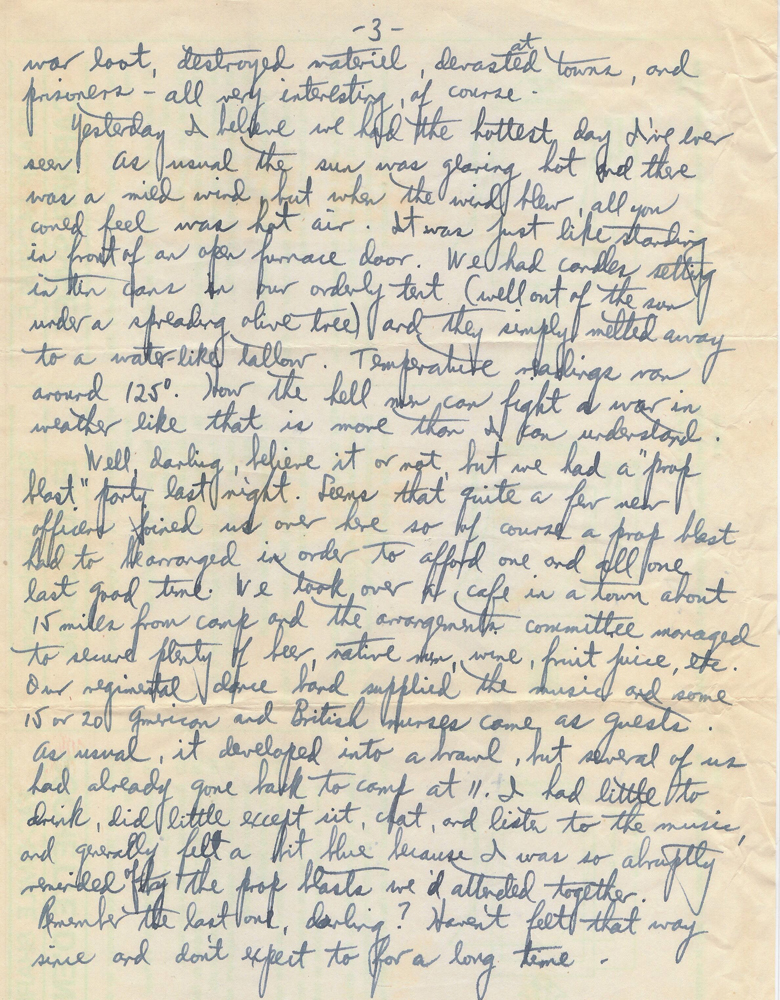 -3-
war loot, destroyed materiel, devasted at towns, and
prisoners - all very interesting, of course.
Yesterday I believe we had the hottest day I've ever
seen. As usual the sun was glaring hot and there
was a mild wind, but when the wind blew, all you
could feel was hot air. It was just like standing
in front of an open furnace door. We had candles setting
in tin cans in our orderly tent (well out of the sun
under a spreading olive tree) and they simply melted away
to a water-like tallow. Temperature readings ran
around 125°. How the hell men can fight a war in
weather like that is more than I can understand.
Well, darling, believe it or not, but we had a "prop
blast" party last night. Seems that quite a few new
officers joined us over here so of course a prop blast
had to be arranged in order to afford one and all one
last good time. We took over a cafe in a town about
15 miles from camp and the arrangements committee managed
to secure plenty of beer, native rum, wine, fruit juice, etc.
Our regimental dance band supplied the music and some
15 or 20 American and British nurses came as guests.
As usual, it developed into a brawl, but several of us
had already gone back to camp at 11. I had little to
drink, did little except sit, chat, and listen to the music,
and generally felt a bit blue because I was so abruptly
reminded of by the prop blasts we'd attended together.
Remember the last one, darling? Haven't felt that way
since and don't expect to for a long time -